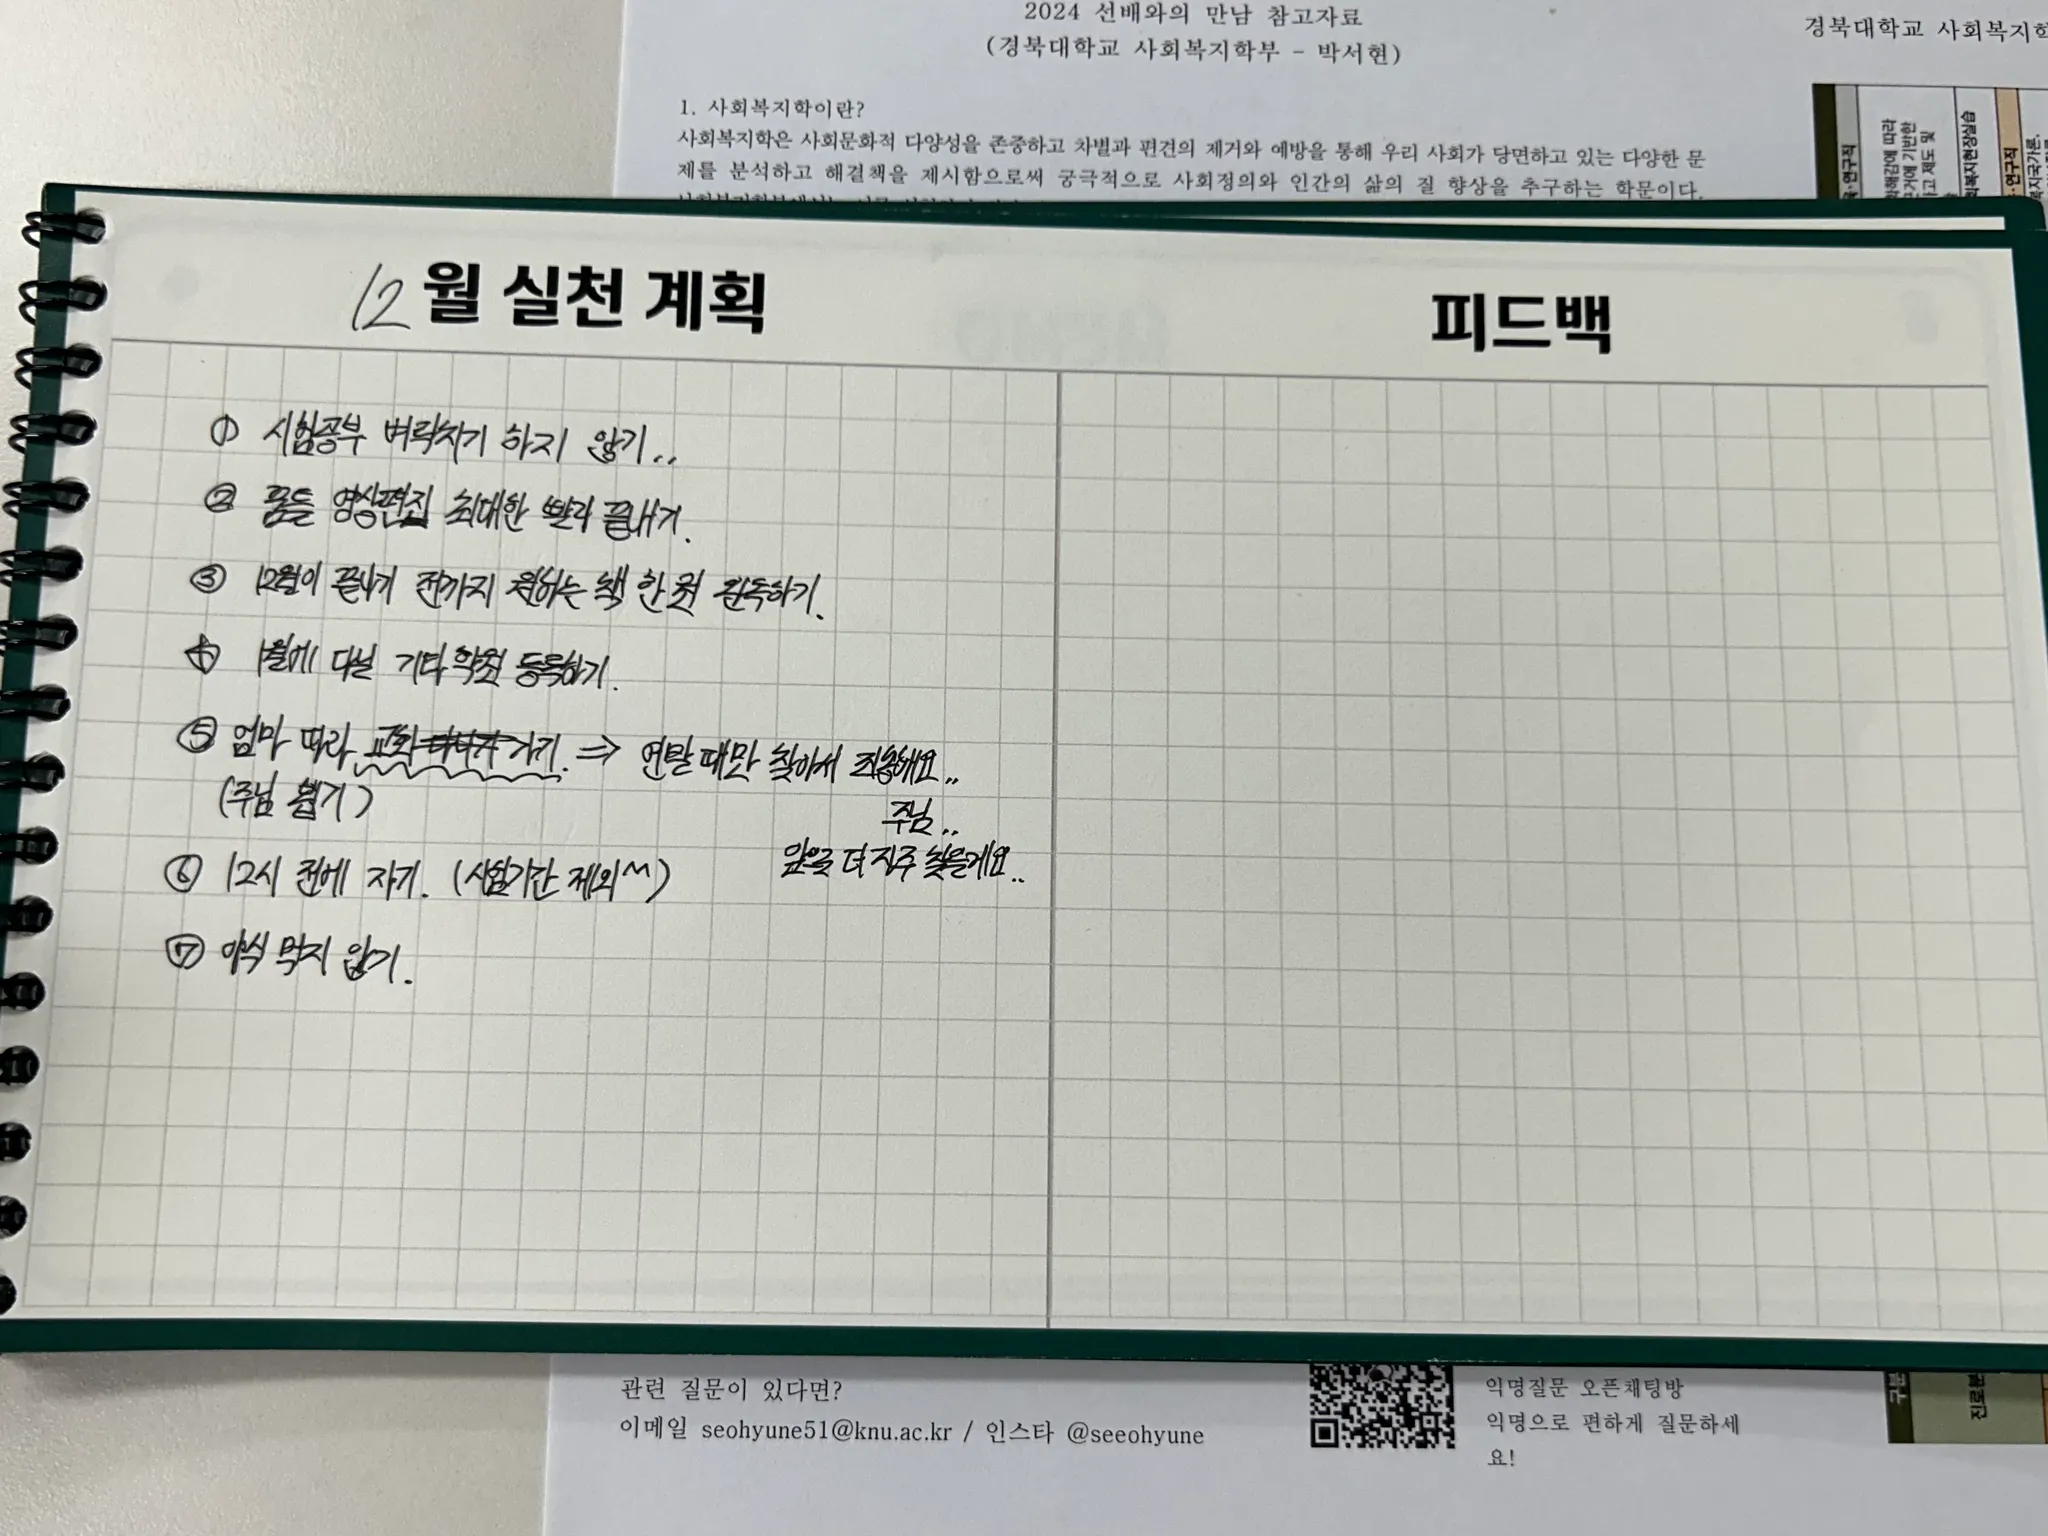 2024 선배와의 만남 참고자료
(경북대학교 사회복지학부 - 박서현)
1. 사회복지학이란?
사회복지학은 사회문화적 다양성을 존중하고 차별과 편견의 제거와 예방을 통해 우리 사회가 당면하고 있는 다양한 문
제를 분석하고 해결책을 제시함으로써 궁극적으로 사회정의와 인간의 삶의 질 향상을 추구하는 학문이다.
경북대학교 사회복지학
12월 실천 계획
① 시험공부 벼락치기 하지 않기..
② 품들 영상편집 최대한 빨리 끝내기.
③ 12월이 끝나기 전까지 원하는 책 한 권 완독하기.
④ 1월에 다닐 기타학원 등록하기.
⑤ 엄마 따라 교회 가기. ⇒ 연말 때만 찾아서 죄송해요..
(주님 뵙기)
주님..
앞으로 더 자주 찾을게요..
⑥ 12시 전에 자기. (시험기간 제외^^)
⑦ 야식 먹지 않기.
피드백
관련 질문이 있다면?
이메일 seohyune51@knu.ac.kr / 인스타 @seeohyune
익명질문 오픈채팅방
익명으로 편하게 질문하세
요!